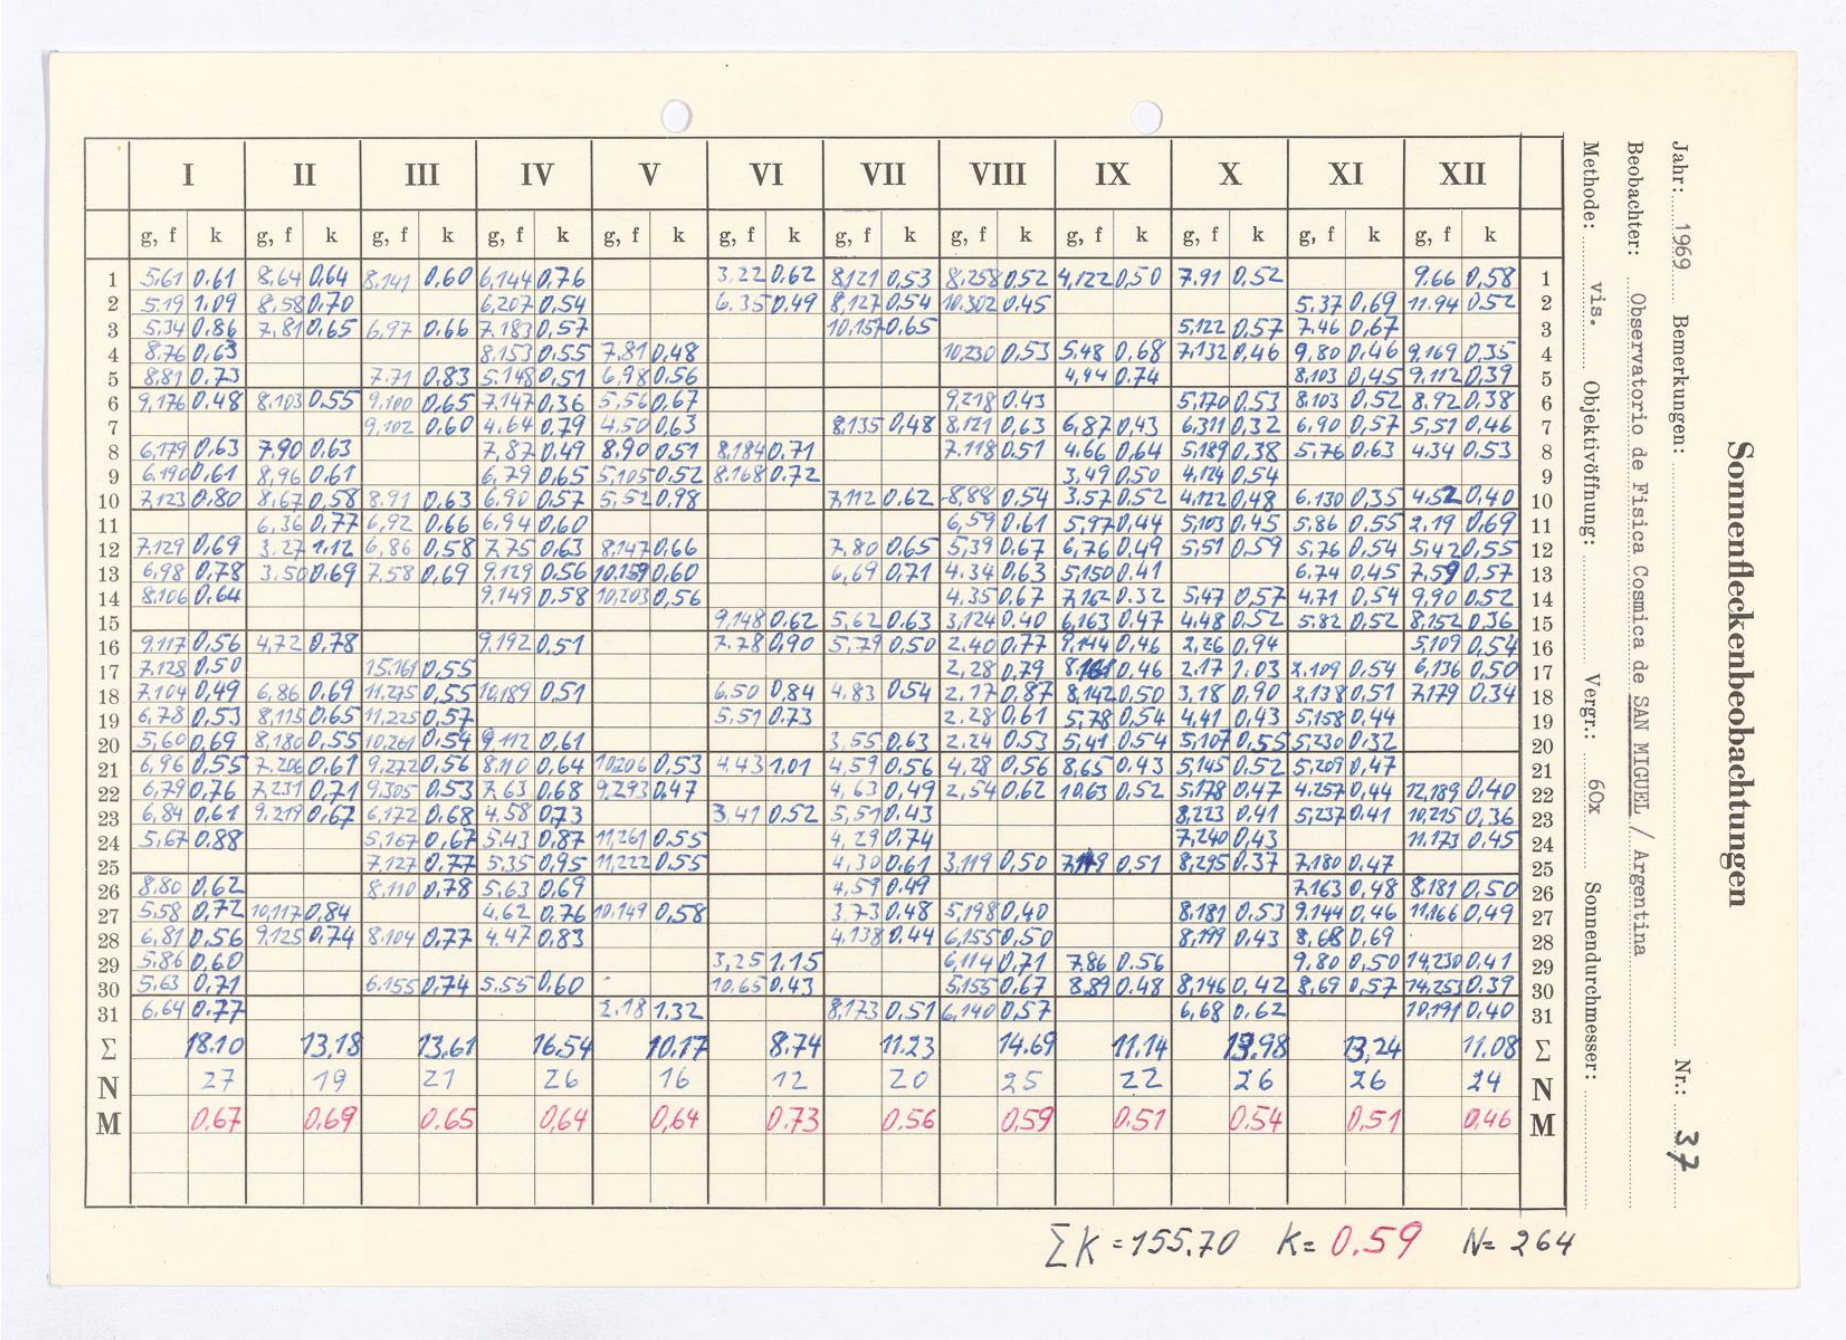 I II III IV V VI VII VIII IX X XI XII
g, f k g, f k g, f k g, f k g, f k g, f k g, f k g, f k g, f k g, f k g, f k g, f k
1 5.61 0.61 8.64 0.64 8.141 0.60 6,144 0.76 3.22 0.62 8,121 0,53 8,258 0.52 4,122 0,50 7.91 0.52 9.66 0,58 1
2 5.19 1.09 8.58 0.70 6,207 0.54 6.35 0.49 8,127 0.54 10.302 0.45 5.37 0.69 11.94 0.52 2
3 5.34 0.86 7.81 0.65 6,97 0.66 7.183 0.57 10.157 0.65 5,122 0.57 7.46 0,67 3
4 8.76 0,63 8.153 0.55 7.81 0,48 10,230 0.53 5.48 0,68 7,132 0,46 9,80 0,46 9,169 0,35 4
5 8.81 0.73 7.71 0.83 5.148 0,51 6,98 0.56 4,44 0.74 8,103 0,45 9,112 0,39 5
6 9,176 0,48 8,103 0.55 9,100 0,65 7,147 0,36 5,56 0,67 9,218 0.43 5,170 0.53 8.103 0.52 8.92 0,38 6
7 9,102 0.60 4.64 0.79 4.50 0.63 8.135 0,48 8,121 0,63 6,87 0,43 6,311 0,32 6,90 0,57 5,51 0,46 7
8 6,179 0,63 7.90 0.63 7,87 0,49 8.90 0,51 8,184 0.71 7.118 0.51 4.66 0,64 5,189 0,38 5,76 0,63 4.34 0,53 8
9 6.190 0,61 8,96 0,61 6,79 0,65 5,105 0.52 8.168 0.72 3,49 0,50 4,124 0,54 9
10 7,123 0.80 8,67 0,58 3.91 0,63 6,90 0,57 5,52 0,98 7,112 0,62 8,88 0,54 3.57 0.52 4,122 0,48 6.130 0,35 4,52 0,40 10
11 6,36 0,77 6,92 0.66 6,94 0,60 6,59 0.61 5,97 0,44 5,103 0.45 5.86 0.55 2.19 0,69 11
12 7.129 0,69 3.27 1.12 6,86 0,58 7.75 0,63 8,147 0,66 7.80 0,65 5,39 0,67 6,76 0,49 5,51 0,59 5,76 0,54 5,42 0,55 12
13 6,98 0,78 3.50 0,69 7,58 0,69 9,129 0.56 10.159 0,60 6,69 0,71 4.34 0,63 5,150 0.41 6.74 0,45 7,59 0,57 13
14 8,106 0,64 9,149 0.58 10,203 0,56 4.35 0,67 7,162 0.32 5,47 0,57 4.71 0,54 9,90 0,52 14
15 9,148 0.62 5,62 0.63 3,124 0.40 6,163 0.47 4.48 0,52 5.82 0,52 8,152 0,36 15
16 9.117 0,56 4,72 0,78 9,192 0,51 7.78 0,90 5,79 0,50 2.40 0,77 9,144 0,46 2,26 0,94 5,109 0,54 16
17 7.128 0,50 15.161 0,55 2,28 0,79 8.161 0,46 2.17 1.03 2,109 0,54 6,136 0,50 17
18 7.104 0,49 6,86 0.69 11,275 0,55 10,189 0,51 6.50 0,84 4.83 0,54 2.17 0,87 8,142 0,50 3,18 0,90 2,138 0,51 7,179 0,34 18
19 6,78 0,53 8,115 0,65 11,225 0,57 5,51 0.73 2.28 0,61 5,78 0,54 4.41 0,43 5,158 0,44 19
20 5,60 0,69 8,180 0,55 10,261 0.54 9,112 0,61 3,55 0,63 2.24 0.53 5,41 0.54 5,107 0,55 5,230 0.32 20
21 6,96 0,55 7,206 0,61 9,272 0,56 8,110 0,64 10,206 0,53 4.43 1.01 4.59 0,56 4.28 0,56 8,65 0.43 5,145 0.52 5,209 0,47 21
22 6,79 0,76 7,231 0,71 9,305 0,53 7.63 0,68 9,293 0,47 4,63 0,49 2,54 0.62 10,63 0,52 5,178 0,47 4.257 0,44 12,189 0,40 22
23 6,84 0,61 9,219 0,67 6,172 0,68 4.58 0,73 3,41 0,52 5,51 0,43 8,223 0,41 5,237 0.41 10,215 0,36 23
24 5,67 0.88 5,167 0,67 5.43 0,87 11,261 0,55 4,29 0,74 7,240 0,43 11.173 0.45 24
25 7,127 0.77 5.35 0,95 11,222 0.55 4,30 0.61 3,119 0,50 0,51 8,295 0.37 7,180 0,47 25
26 8.80 0,62 8.110 0,78 5,63 0,69 4,59 0.49 7,163 0,48 8,181 0,50 26
27 5.58 0,72 10,117 0,84 4,62 0,76 10,149 0,58 3.73 0.48 5,198 0,40 8,181 0.53 9.144 0,46 11,166 0,49 27
28 6,81 0,56 9,125 0,74 8,104 0,77 4.47 0,83 4,138 0.44 6,155 0,50 8,199 0,43 8,68 0,69 28
29 5.86 0,60 3,25 1.15 6,114 0,71 7.86 0.56 9.80 0,50 14,230 0.41 29
30 5.63 0,71 6.155 0,74 5.55 0,60 10.65 0.43 5,155 0,67 8,89 0.48 8,146 0,42 8,69 0,57 14,253 0.39 30
31 6,64 0.77 2.18 1.32 8,173 0,51 6,140 0,57 6,68 0,62 10,191 0,40 31
Σ 18.10 13,18 13,61 16.54 10.17 8.74 11.23 14.69 11.14 13,98 13,24 11.08 Σ
N 27 19 21 26 16 12 20 25 22 26 26 24 N
M 0.67 0.69 0.65 0,64 0,64 0.73 0.56 0,59 0.51 0.54 0,51 0,46 M
ΣK = 155.70 K = 0.59 N = 264
Sonnenfleckenbeobachtungen
Jahr: 1969 Bemerkungen: Nr.: 37
Beobachter: Observatorio de Fisica Cosmica de SAN MIGUEL / Argentina
Methode: vis. Objektivöffnung: Vergr.: 60x Sonnendurchmesser: